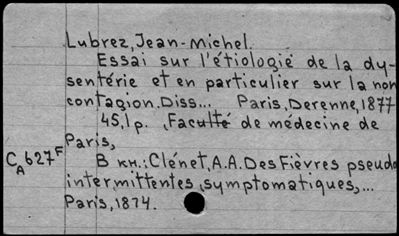 Lubrez, Jean-Michel.
Essai sur l'étiologie de la dy-
sentérie et en particulier sur la non
contagion. Diss... Paris, Derenne, 1877
45,1 p. , Faculté de médecine de
Paris,
C A 627 F В кн.: Clénet, A.A. Des Fièvres pseudo
intermittentes, symptomatiques,...
Paris, 1874.